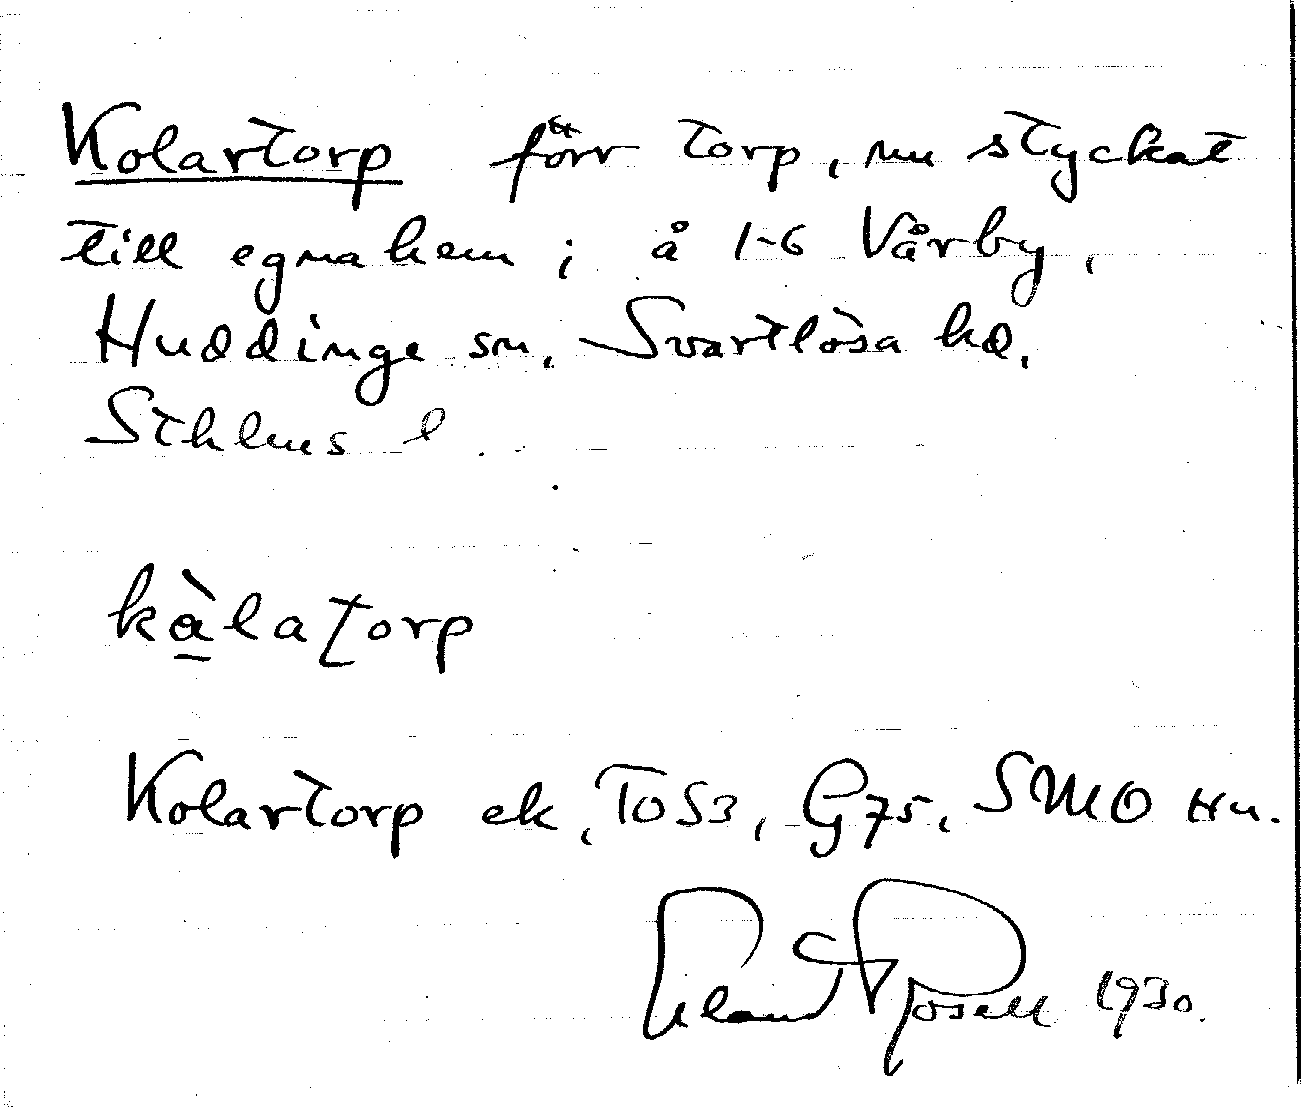 Kolartorp förr torp, nu styckat
till egnahem; å 1-6 Vårby,
Huddinge sn, Svartlösa hd,
Sthlms l
kàlatorp
Kolartorp ek, TOS3, G75, SMO Hu.
1930.